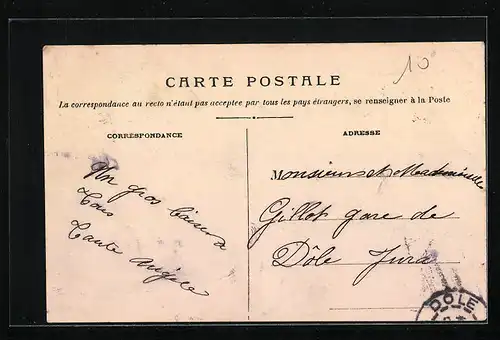 CARTE POSTALE
10
La correspondance au recto n'étant pas acceptée par tous les pays étrangers, se renseigner à la Poste
CORRESPONDANCE
Un gros baiser à
Tous
Tante Angèle
ADRESSE
Monsieur et Mademoiselle
Gillot gare de
Dôle Jura
DOLE